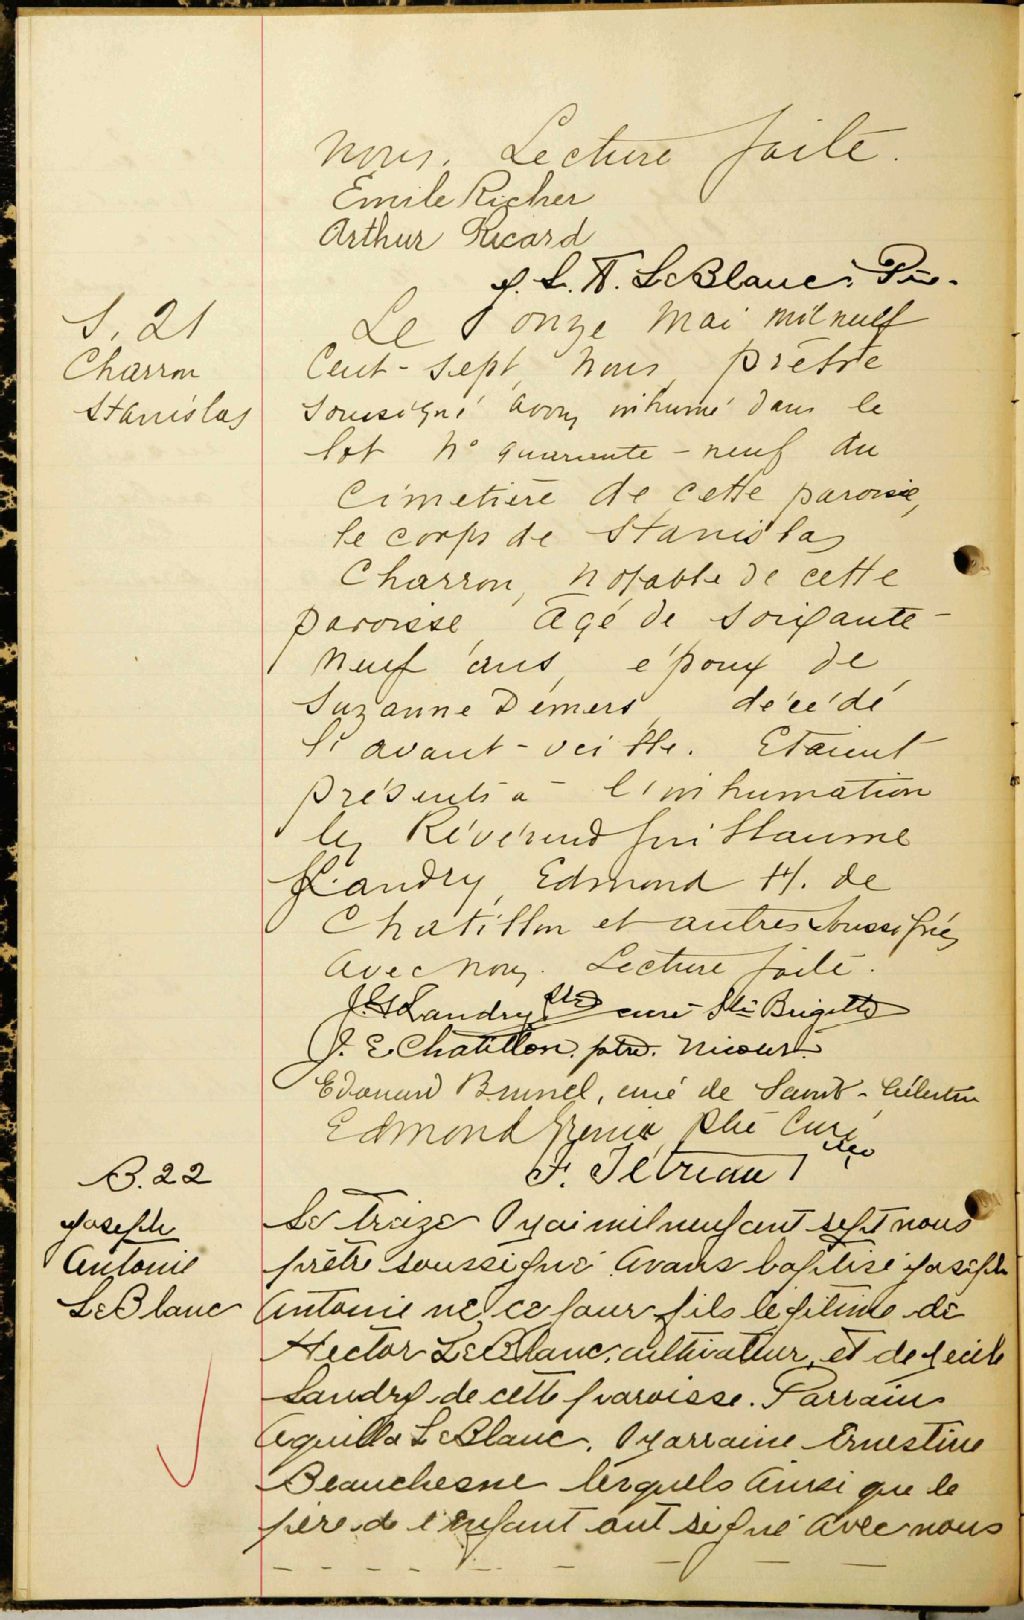 nous. Lecture faite.
Emile Richer
Arthur Ricard
J. L. A. LeBlanc. Ptre.
S. 21
Charron
Stanislas
Le onze Mai mil neuf
Cent-Sept, Nous, prêtre
soussigné avons inhumé dans le
lot No quarante-neuf du
Cimetière de cette paroisse,
le corps de Stanislas
Charron, notable de cette
paroisse, âgé de Soixante-
Neuf ans, époux de
Suzanne Demers, décédé
l'avant-veille. Etaient
présents à l'inhumation
les Révérend Guillaume
Landry, Edmond H. de
Chatillon et autres soussignés
avec nous. Lecture faite.
Landry Ptre curé Ste Brigitte
J. E. Chatillon. ptre. Nicolet.
Edouard Brunel, curé de Saint-Célestin
Edmond Grenier Ptre Curé
F. Tétreau
B. 22
Joseph
Antonie
LeBlanc
Le treize Mai mil neuf cent sept nous
prêtre soussigné avons baptisé Joseph
Antonie né ce jour fils légitime de
Hector LeBlanc, cultivateur, et de Cécile
Landry de cette paroisse. Parrain
Aquilla LeBlanc. Marraine Ernestine
Beauchesne lesquels ainsi que le
père de l'enfant ont signé avec nous